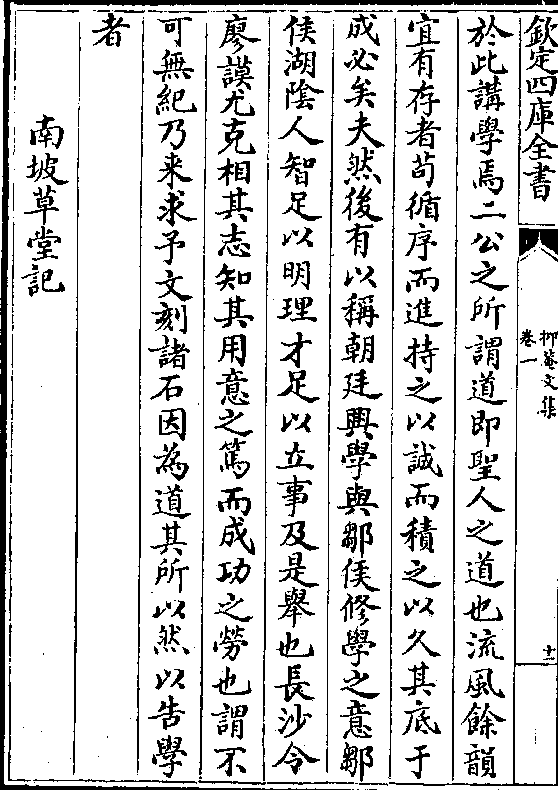 欽定四庫全書
抑菴文集
卷一
十二
於此講學焉二公之所謂道即聖人之道也流風餘韻
宜有存者苟循序而進持之以誠而積之以久其底于
成必矣夫然後有以稱朝廷興學與鄒侯修學之意鄒
侯湖陰人智足以明理才足以立事及是舉也長沙令
廖謨尤克相其志知其用意之篤而成功之勞也謂不
可無紀乃来求予文刻諸石因為道其所以然以告學
者
南坡草堂記